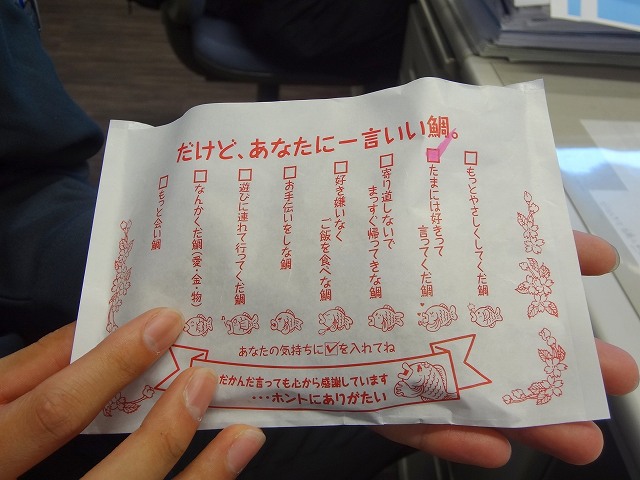 だけど、あなたに一言いい鯛。
□もっとやさしくしてくだ鯛
□たまには好きって
言ってくだ鯛
□寄り道しないで
まっすぐ帰ってきな鯛
□好き嫌いなく
ご飯を食べな鯛
□お手伝いをしな鯛
□遊びに連れて行ってくだ鯛
□なんかくだ鯛(愛・金・物)
□もっと会い鯛
あなたの気持ちに☑を入れてね
だかんだ言っても心から感謝しています
・・・ホントにありがたい